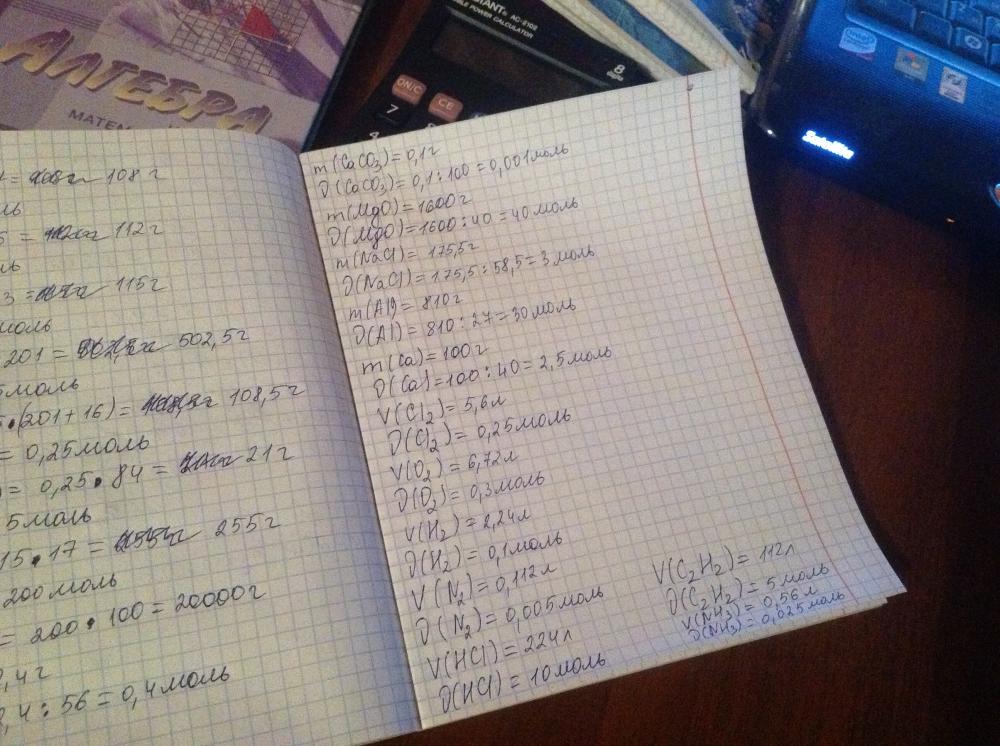 АЛГЕБРА
AC-2102
POWER CALCULATOR
8
ON/C
CE
7
intel
Satellite
108 г
ль
112 г
ль
115 г
моль
201 = 502,5 г
5 моль
•(201+16) = 108,5 г
= 0,25 моль
= 0,25 • 84 = 21 г
5 моль
15 • 17 = 255 г
200 моль
= 200 • 100 = 20000 г
,4 г
,4 : 56 = 0,4 моль
m(CaCO3) = 0,1 г
ν(CaCO3) = 0,1 : 100 = 0,001 моль
m(MgO) = 1600 г
ν(MgO) = 1600 : 40 = 40 моль
m(NaCl) = 175,5 г
ν(NaCl) = 175,5 : 58,5 = 3 моль
m(Al) = 810 г
ν(Al) = 810 : 27 = 30 моль
m(Ca) = 100 г
ν(Ca) = 100 : 40 = 2,5 моль
V(Cl2) = 5,6 л
ν(Cl2) = 0,25 моль
V(O2) = 6,72 л
ν(O2) = 0,3 моль
V(H2) = 2,24 л
ν(H2) = 0,1 моль
V(N2) = 0,112 л
ν(N2) = 0,005 моль
V(HCl) = 224 л
ν(HCl) = 10 моль
V(C2H2) = 112 л
ν(C2H2) = 5 моль
V(NH3) = 0,56 л
ν(NH3) = 0,025 моль